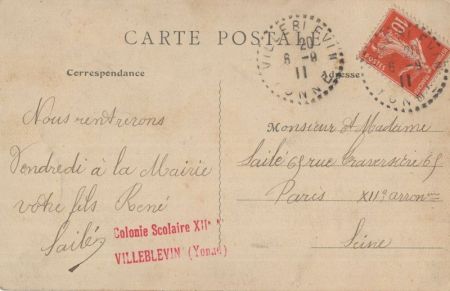 CARTE POSTALE
VILLEBLEVIN
20
6 -9
11
YONNE
10
Correspondance
Adresse
Nous rentrerons
Vendredi à la Mairie
votre fils René
Sailé
Colonie Scolaire XIIe
VILLEBLEVIN (Yonne)
Monsieur et Madame
Sailé 65 rue Traversière 65
Paris XIIe arron
Seine